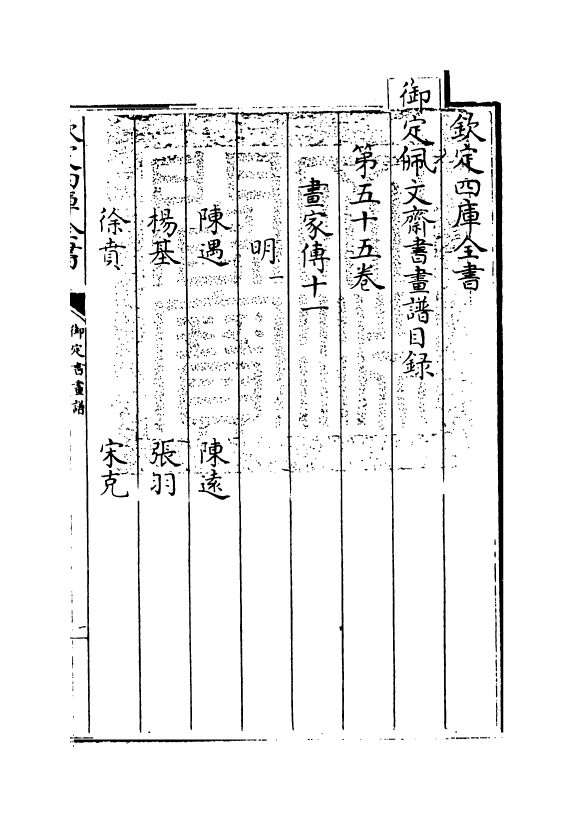 欽定四庫全書
御定佩文齋書畫譜目録
第五十五卷
畫家傳十一
明一
陳遇
陳遠
楊基
張羽
徐賁
宋克
欽定四庫全書
御定書畫譜
一